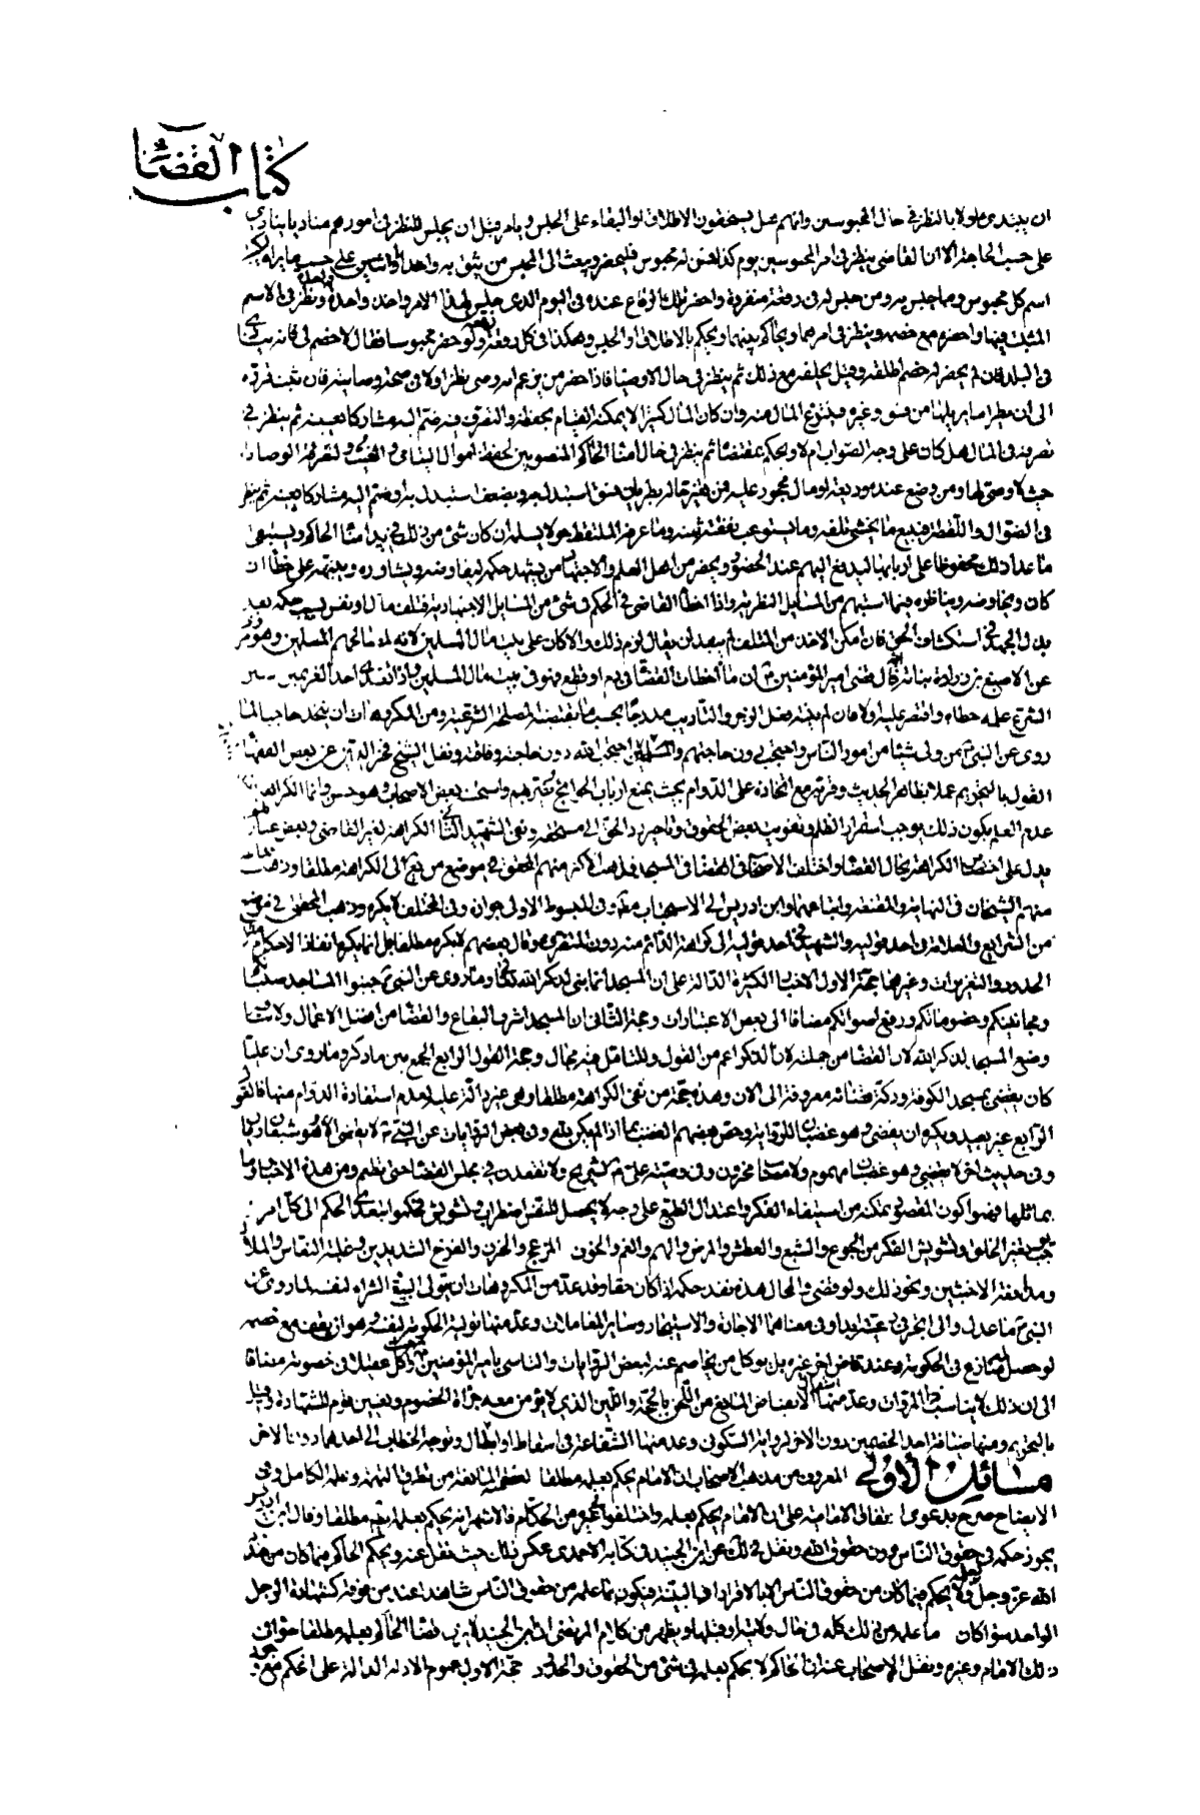 كتاب القضاء
ان يبتدى اولا بالنظر فى حال المحبوسين وانهم هل يستحقون الاطلاق او البقاء على الحبس ويامر قبل ان يجلس للنظر فى امورهم مناديا ينادى
على حسب الحاجة الا ان القاضى ينظر فى امر المحبوسين يوم كذا فمن له محبوس فليحضر ويبعث الى الحبس من يثق به واحدا او اثنين على حسب ما يراه
اسم كل محبوس وما حبس به ومن حبس له فى رقعة منفردة واحضر تلك الرقاع عنده فى اليوم الذى جلس لهذا الامر واخذ واحدة واحدة ونظر فى الاسم
المثبت فيها واحضره مع خصمه وينظر فى امرهما ويحاكم بينهما ويحكم بالاطلاق او الحبس وهكذا فى كل رقعة ولو حضر محبوسا فقال لا خصم لى فانه ينادى
فى البلد فان لم يحضر له خصم اطلقه وقيل يحلفه مع ذلك ثم ينظر فى حال الاوصيا فاذا حضر من يزعم انه وصى نظر اولا فى صحة وصايته فان ثبت قرره
الى ان يطرا ما يزيلها من فسق وغيره فينتزع المال منه وان كان المال كثيرا لا يمكنه القيام بحفظه والتصرف فيه ضم اليه مشاركا يعينه ثم ينظر فى
تصرفه فى المال هل كان على وجه الصواب ام لا ويحكم بمقتضاه ثم ينظر فى حال امناء الحاكم المنصوبين لحفظ اموال اليتامى و ولتفرقة الوصايا
حيث لا وصى لها ومن وضع عنده وديعة او مال محجور عليه فمن تغير حاله بطريان فسق استبدل به او بضعف استبدل به او ضم اليه مشاركا يعينه ثم ينظر
فى الضوال واللقطة فيبيع ما يخشى تلفه وما يستوعب نفقته ثمنه وما عرفه الملتقط حولا يسلمه ان كان شئ من ذلك فى يد امناء الحاكم ويستبقى
ما عدا ذلك محفوظا على اربابها ليدفع اليهم عند الحضور ويحضر من اهل العلم والاجتهاد من يشهد حكمه ليفاوضه ويشاوره وينبهه على خطائه ان
كان ويخاوضه ويناظره فيما استبهم من المسائل النظرية واذا اخطأ القاضى فى الحكم فى شئ من المسايل الاجتهادية فتلف مال او نفس بسبب حكمه بعد
بذل الجهد فى استكشاف الحق فان امكن الاخذ من المتلف لم يبعد ان يقال لزم ذلك والا كان على بيت مال المسلمين لانه لمصالحهم
عن الاصبغ بن نباتة قال قضى امير المؤمنين ع ان ما اخطأت القضاة فى دم او قطع فهو فى بيت مال المسلمين واذا تعدى احد الغريمين سنن
الشرع عرفه خطاءه واقتصر عليه اولا فان لم يفد فعل الزجر والتاديب متدرجا بحسب ما يقتضيه المصلحة الشرعية ومن المكروهات ان يتخذ حاجبا لما
روى عن النبى ص من ولى شيئا من امور الناس فاحتجب دون حاجتهم احتجب الله دون حاجته وفاقته ونقل الشيخ فخر الدين عن بعض الفقهاء
القول بالتحريم عملا بظاهر الحديث وقربه مع اتخاذه على الدوام بحيث يمنع ارباب الحوائج ويضرهم واستحسنه بعض الاصحاب وهو حسن وانما الكراهة
عدم العلم بكون ذلك يوجب استمرار الظلم وتفويت بعض الحقوق وتاخير رد الحق الى مستحقه ونفى الشهيد الثانى الكراهة لغير القاضى وبعض
يدل على اختصاص الكراهة بحال القضاء واختلف الاصحاب فى القضاء فى المسجد فذهب الاكثر منهم المحقق فى موضع من يع الى الكراهة مطلقا وذهب
منهم الشيخان فى النهاية والمقنعة واتباعهما وابن ادريس الى الاستحباب مطلقا وفى المبسوط الاولى جوازه وفى المختلف لا يكره وذهب المحقق فى موضع
من الشرايع والعلامة فى احد قوليه والشهيد فى احد قوليه الى كراهة الدائم منه دون المتفرق وقال بعضهم لا يكره مطلقا بل انما يكره انفاذ الاحكام
الحدود والتعزيرات وغيرهما حجة الاول الاخبار الكثيرة الدالة على ان المسجد انما بنى لذكر الله تعالى وما روى عن النبى ص جنبوا المساجد صبيانكم
ومجانينكم وخصوماتكم ورفع اصواتكم مضافا الى بعض الاعتبارات وحجة الثانى ان المسجد اشرف البقاع والقضاء من افضل الاعمال ولا ينافيه
وضع المسجد لذكر الله لان القضاء من جملته لان الذكر اعم من القول وللتامل فيه مجال وحجة القول الرابع الجمع بين ما ذكر وما روى ان عليا
كان يقضى بمسجد الكوفة ودكة قضائه معروفة الى الان وهذه حجة من نفى الكراهة مطلقا وهى غير دالة عليه لعدم استفادة الدوام منها فالقول
الرابع غير بعيد ويكره ان يقضى وهو غضبان للرواية وخص بعضهم الغضب بما اذا لم يكن لله وفى بعض الروايات عن النبى ص لا يقضى الا وهو شبعان ريان
وفى حديث اخر لا يقضى وهو غضبان مهموم ولا مصاب محزون وفى وصيته على ع لشريح ولا تقعدن فى مجلس القضاء حتى تطعم ومن هذه الاخبار وما
يماثلها فهموا كون المقصود تمكنه من استيفاء الفكر واعتدال الطبع على وجه لا يحصل للنفس اضطراب وتشويش فحكموا بتعدى الحكم الى كل امر
يوجب تغير الخلق وتشويش الفكر من الجوع والشبع والعطش والمرض والهم والغم والخوف المزعج والحزن والفرح الشديدين وغلبة النعاس والملال
ومدافعة الاخبثين ونحو ذلك ولو قضى والحال هذه نفذ حكمه اذا كان حقا وقد عد من المكروهات ان يتولى البيع والشراء لنفسه لما روى عن
النبى ص ما عدل وال اتجر فى رعيته ابدا وفى معناهما الاجارة والاستيجار وساير المعاملات وعد منها تولية الحكومة بنفسه وهو ان يقف مع خصمه
لو حصل له منازع فى الحكومة عند قاض اخر غيره بل يوكل من يخاصم عنه لبعض الروايات والتاسى بامير المؤمنين ع حيث وكل عقيلا فى خصومة مضافا
الى ان ذلك لا يناسب ذا المروات وعد منها استعمال الانقباض المانع من اللحن بالحجة واللين الذى لا يؤمن معه جرأة الخصوم وتعيين قوم للشهادة وقيل
بالتحريم ومنها ضيافة احد الخصمين دون الاخر لرواية السكونى وعد منها الشفاعة فى اسقاط او ابطال وتوجه الخطاب الى احدهما دون الاخر
مسائل الاولى المعروف من مذهب الاصحاب ان الامام يحكم بعلمه مطلقا لعصمته المانعة من تطرق التهمة وعلمه الكامل وفى
الايضاح صرح بدعوى اتفاق الامامية على ان الامام يحكم بعلمه واختلفوا فى غيره من الحكام فالاشهر انه يحكم بعلمه ايضا مطلقا وقال ابن ادريس
يجوز حكمه فى حقوق الناس دون حقوق الله ونقل فى لك عن ابن الجنيد فى كتابه الاحمدى عكس ذلك حيث نقل عنه ويحكم الحاكم فيما كان من حدود
الله عز وجل بعلمه ولا يحكم فيما كان من حقوق الناس الا بالاقرار او البينة فيكون ما علمه من حقوق الناس شاهدا عند من فوقه كشهادة الرجل
الواحد سواء كان ما علمه من ذلك كله فى حال ولايته او قبلها ويظهر من كلام المرتضى ان ابن الجنيد لا يرى قضاء الحاكم بعلمه مطلقا سواء فى
ذلك الامام وغيره ونقل الاصحاب عنه ان الحاكم لا يحكم بعلمه فى شئ من الحقوق والحدود حجة الاول عموم الادلة الدالة على الحكم مع